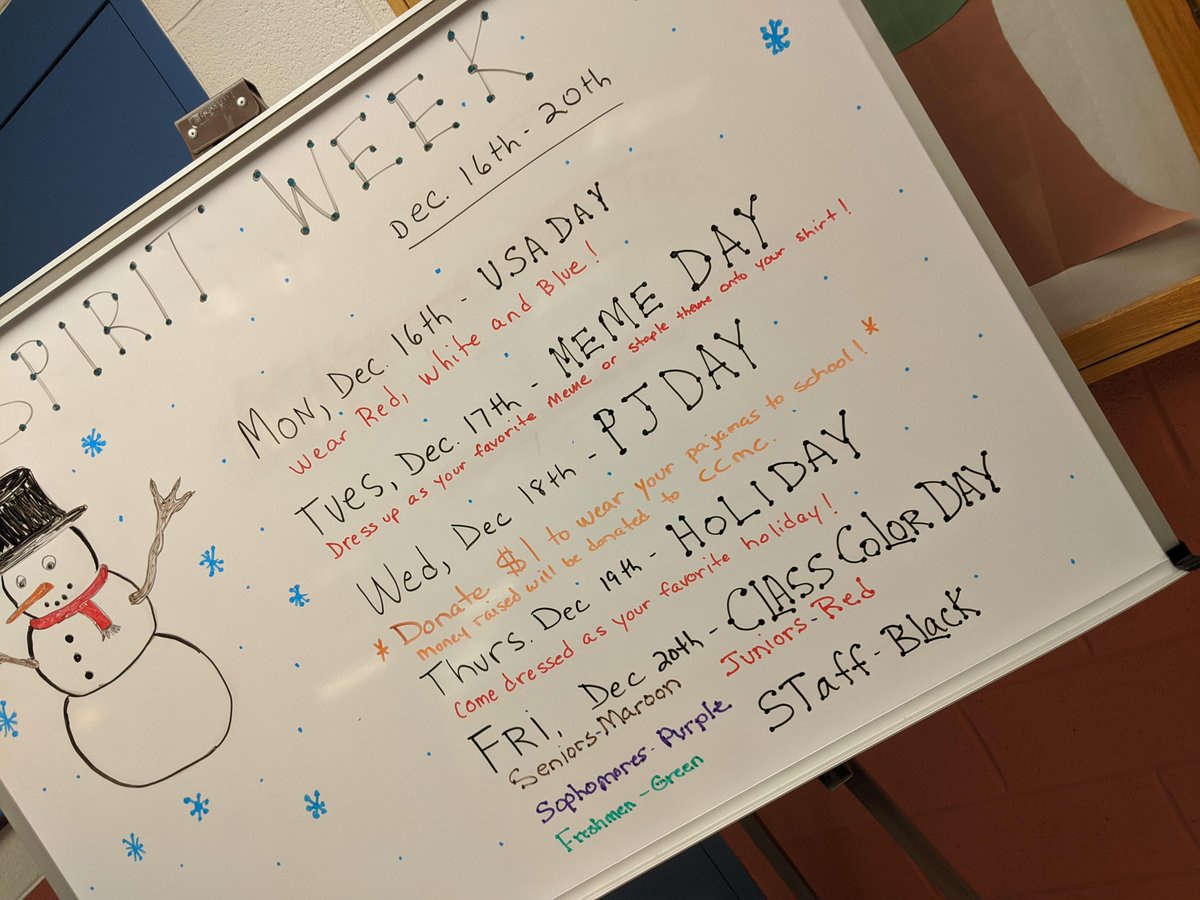 SPIRIT WEEK
Dec. 16th - 20th
Mon, Dec. 16th - USA DAY
Wear Red, White and Blue!
Tues, Dec. 17th - MEME DAY
Dress up as your favorite Meme or staple theme onto your shirt!
Wed, Dec 18th - PJ DAY
* Donate $1 to wear your pajamas to school! *
money raised will be donated to CCMC.
Thurs. Dec 19th - HOLIDAY
Come dressed as your favorite holiday!
FRI, Dec 20th - CLASS COLOR DAY
Seniors - Maroon Juniors - Red
Sophomores - Purple STaff - BLack
Freshmen - Green